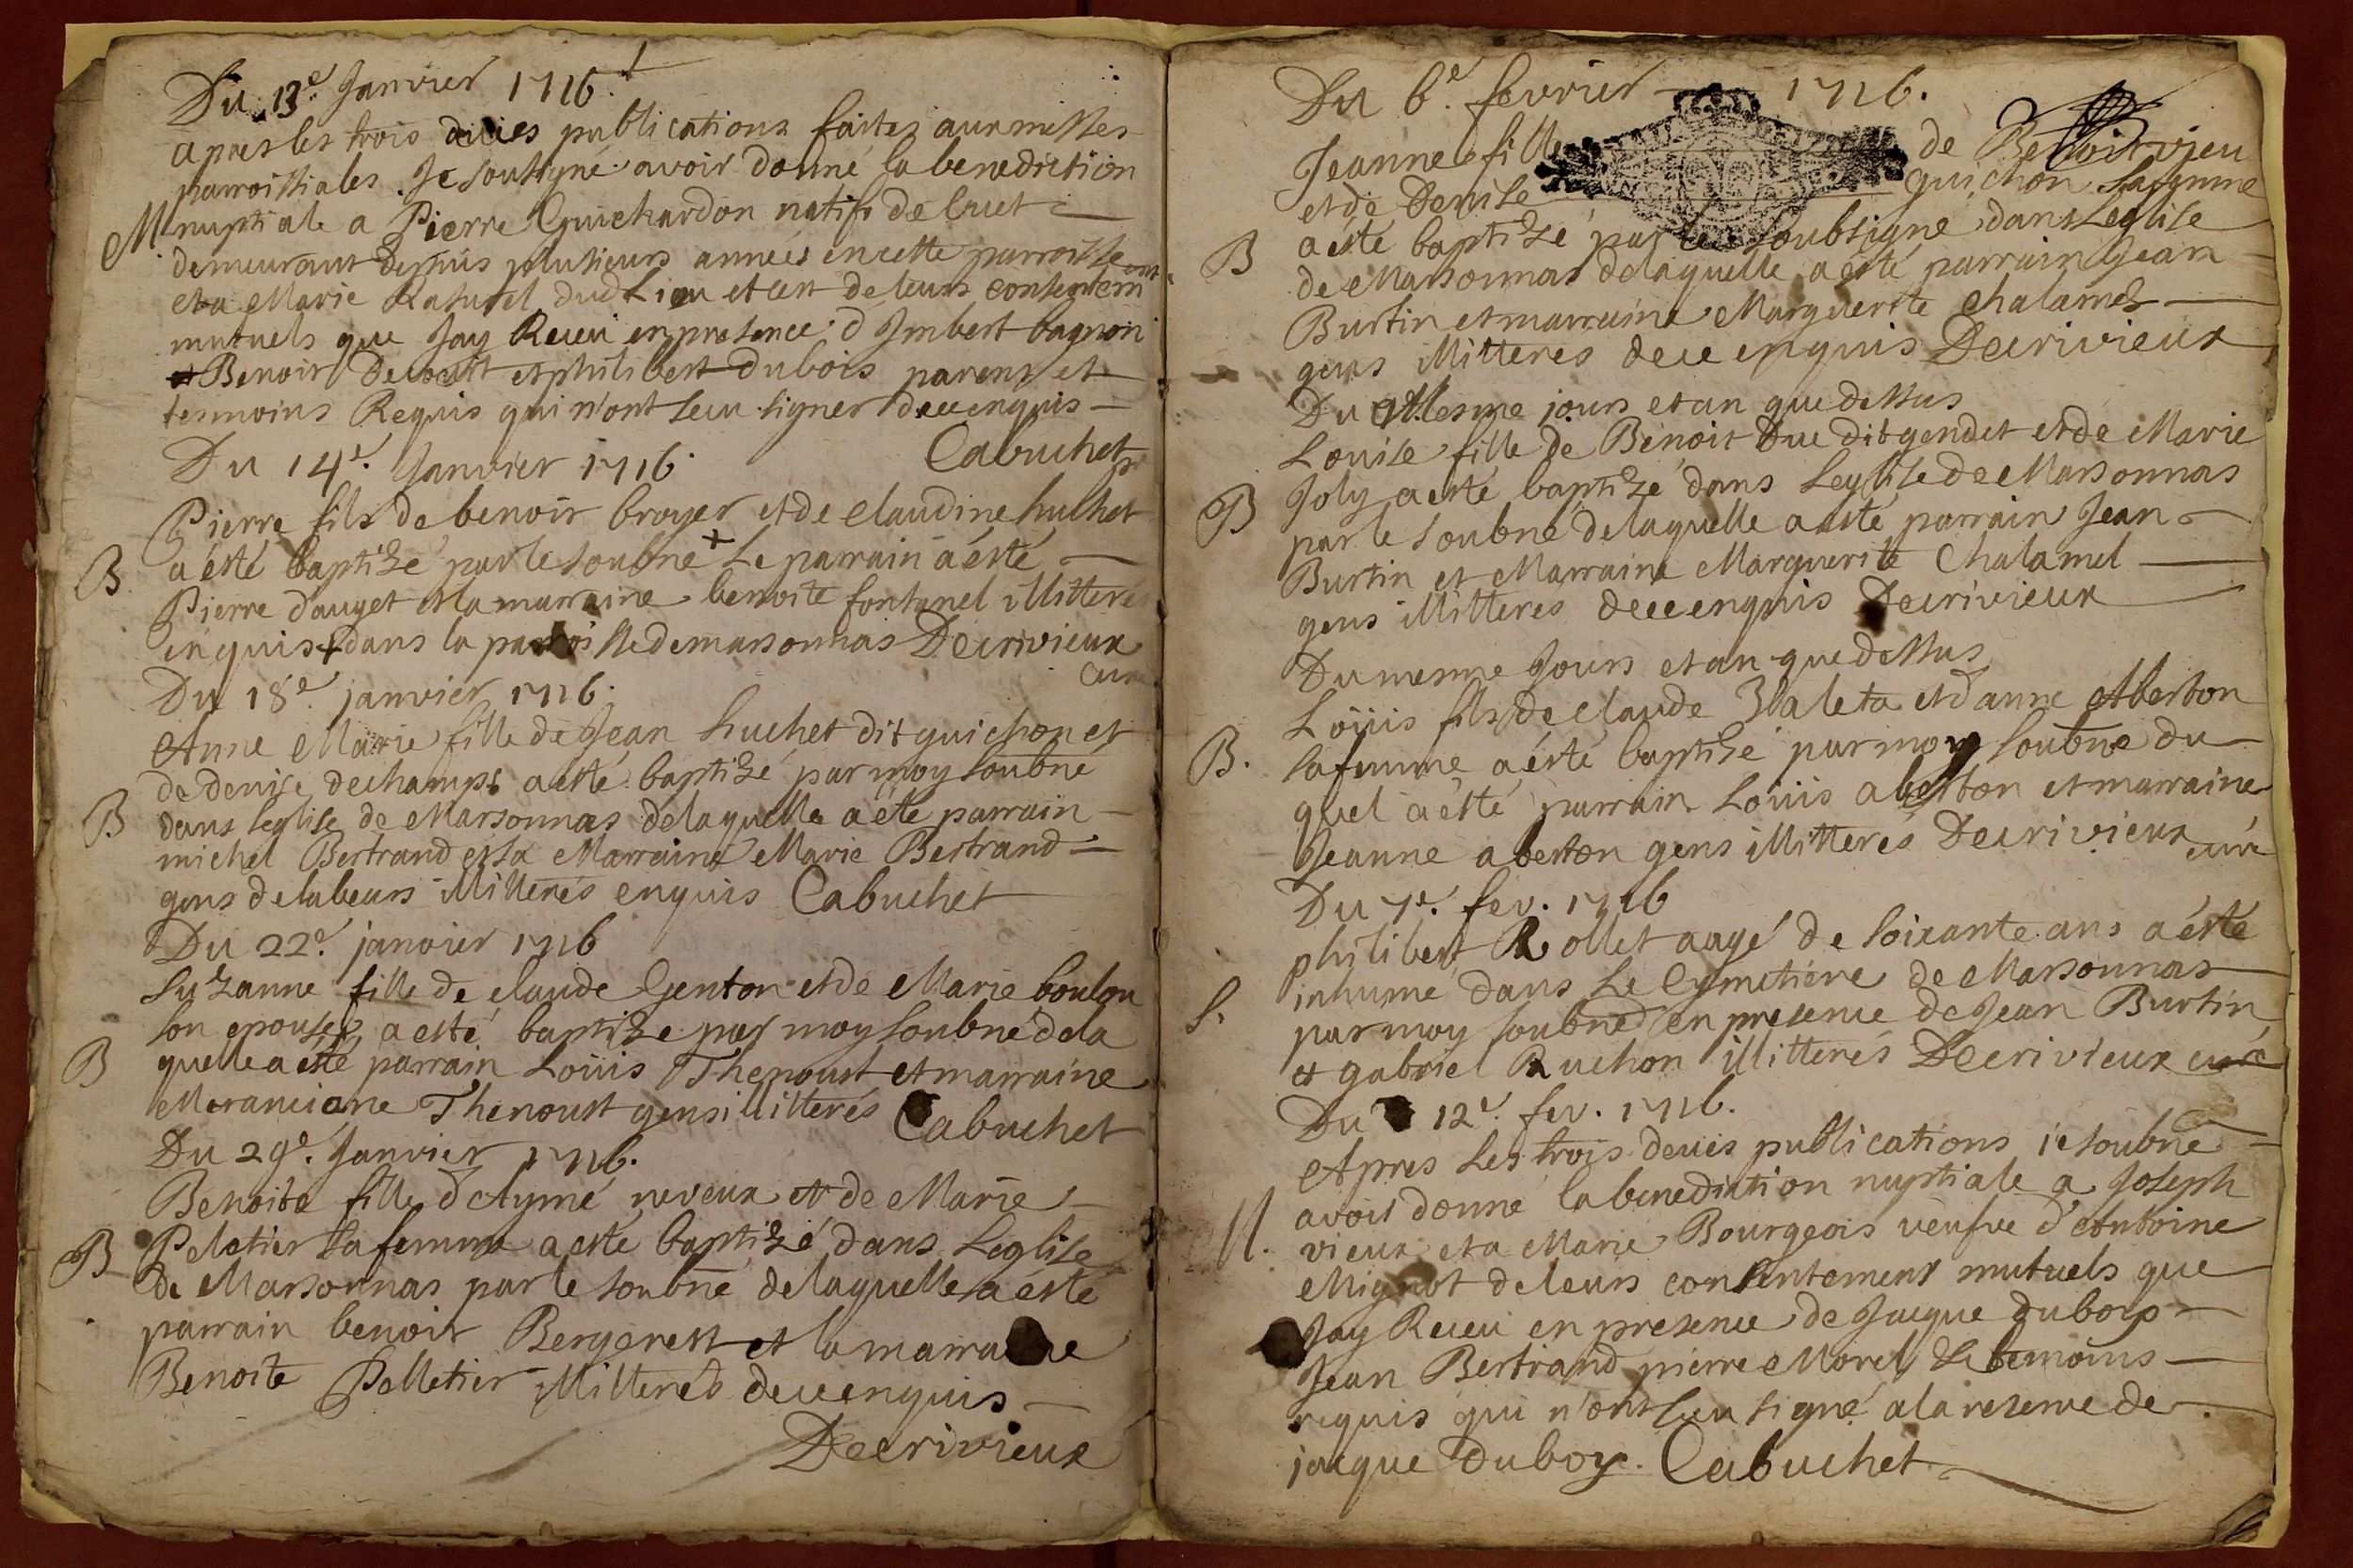 Du 13e. Janvier 1716.
apres les trois deües publications faites aux messes
parroissiales. Je soussigné avoir donné la benediction
M nuptiale a Pierre Guichardon natif de
demeurant depuis plusieurs années en cette parroisse
et a Marie du d Lieu et est de leurs consentem ent
mutuels que Jay Receu en presence d Imbert bagnon
Benoit et philibert dubois parens et
tesmoins Requis qui n'ont sceu signer de ce enquis
Cabuchet
Du 14e. Janvier 1716.
Pierre fils de benoit broyer et de claudine huchet
B a esté baptizé par le soubne + Le parrain a esté
Pierre dauget et la marraine benoite fontanel illitteré
enquis + dans la parroisse de marsonnas Decrivieux
curé
Du 18e. janvier 1716.
Anne Marie fille de Jean huchet dit guichon et
de denise dechamps a esté baptizé par moy soubne
B dans leglise de Marsonnas de laquelle a été parrain
michel Bertrand et sa Marraine Marie Bertrand
gens de labeurs illiterés enquis Cabuchet
Du 22e. janvier 1716
Suzanne fille de claude Genton et de Marie boulon
son epouse a esté baptize par moy soubné de la
B quelle a esté parrain Loüis Thenoust et marraine
Thenoust gens illitterés Cabuchet
Du 29e. Janvier 1716.
Benoite fille d'Aymé neveux et de Marie
B Peletier sa femme a esté baptizé dans Leglise
de Marsonnas par le soubne de laquelle a esté
parrain benoit et la marraine
Benoite Pelletier illitterés de ce enquis
Decrivieux
Du 6e. fevrier 1716.
Jeanne fille de Benoit vieu
et de Denise guichon sa femme
B a esté baptizé par le soubsigné dans Leglise
de Marsonnas de laquelle a esté parrain Jean
Burtin et marraine Marguerite chalamel
gens illitteres de ce enquis Decrivieux
Du mesme jours et an que dessus
Louise fille de Benoit Due dit gendet et de Marie
B Joly a esté baptizé dans Leglise de Marsonnas
par le soubne de laquelle a esté parrain Jean
Burtin et Marraine Marguerite Chalamel
gens illitterés de ce enquis Decrivieux
Du mesme Jours et an que dessus
Loüis fils de claude et d'anne Aberton
B. sa femme a esté baptizé par moy soubne du
quel a esté parrain Loüis aberton et marraine
Jeanne aberton gens illitterés Decrivieux curé
Du 7e. fev. 1716
philibert Rollet aagé de soixante ans a esté
S. inhumé dans Le Cymetiere de Marsonnas
par moy soubne en presence de Jean Burtin
et gabriel Ruchon illitterés Decrivieux curé
Du 12e. fev. 1716.
Apres Les trois deües publications je soubne
avoir donné la benediction nuptiale a Joseph
M. vieux et a Marie Bourgeois veufve d'Antoine
Mignot de leurs consentement mutuels que
Jay Receu en presence de Jacque dubois
Jean Bertrand pierre Morel temoins
requis qui n'ont sceu signé a la reserve de
jacque Duboy. Cabuchet